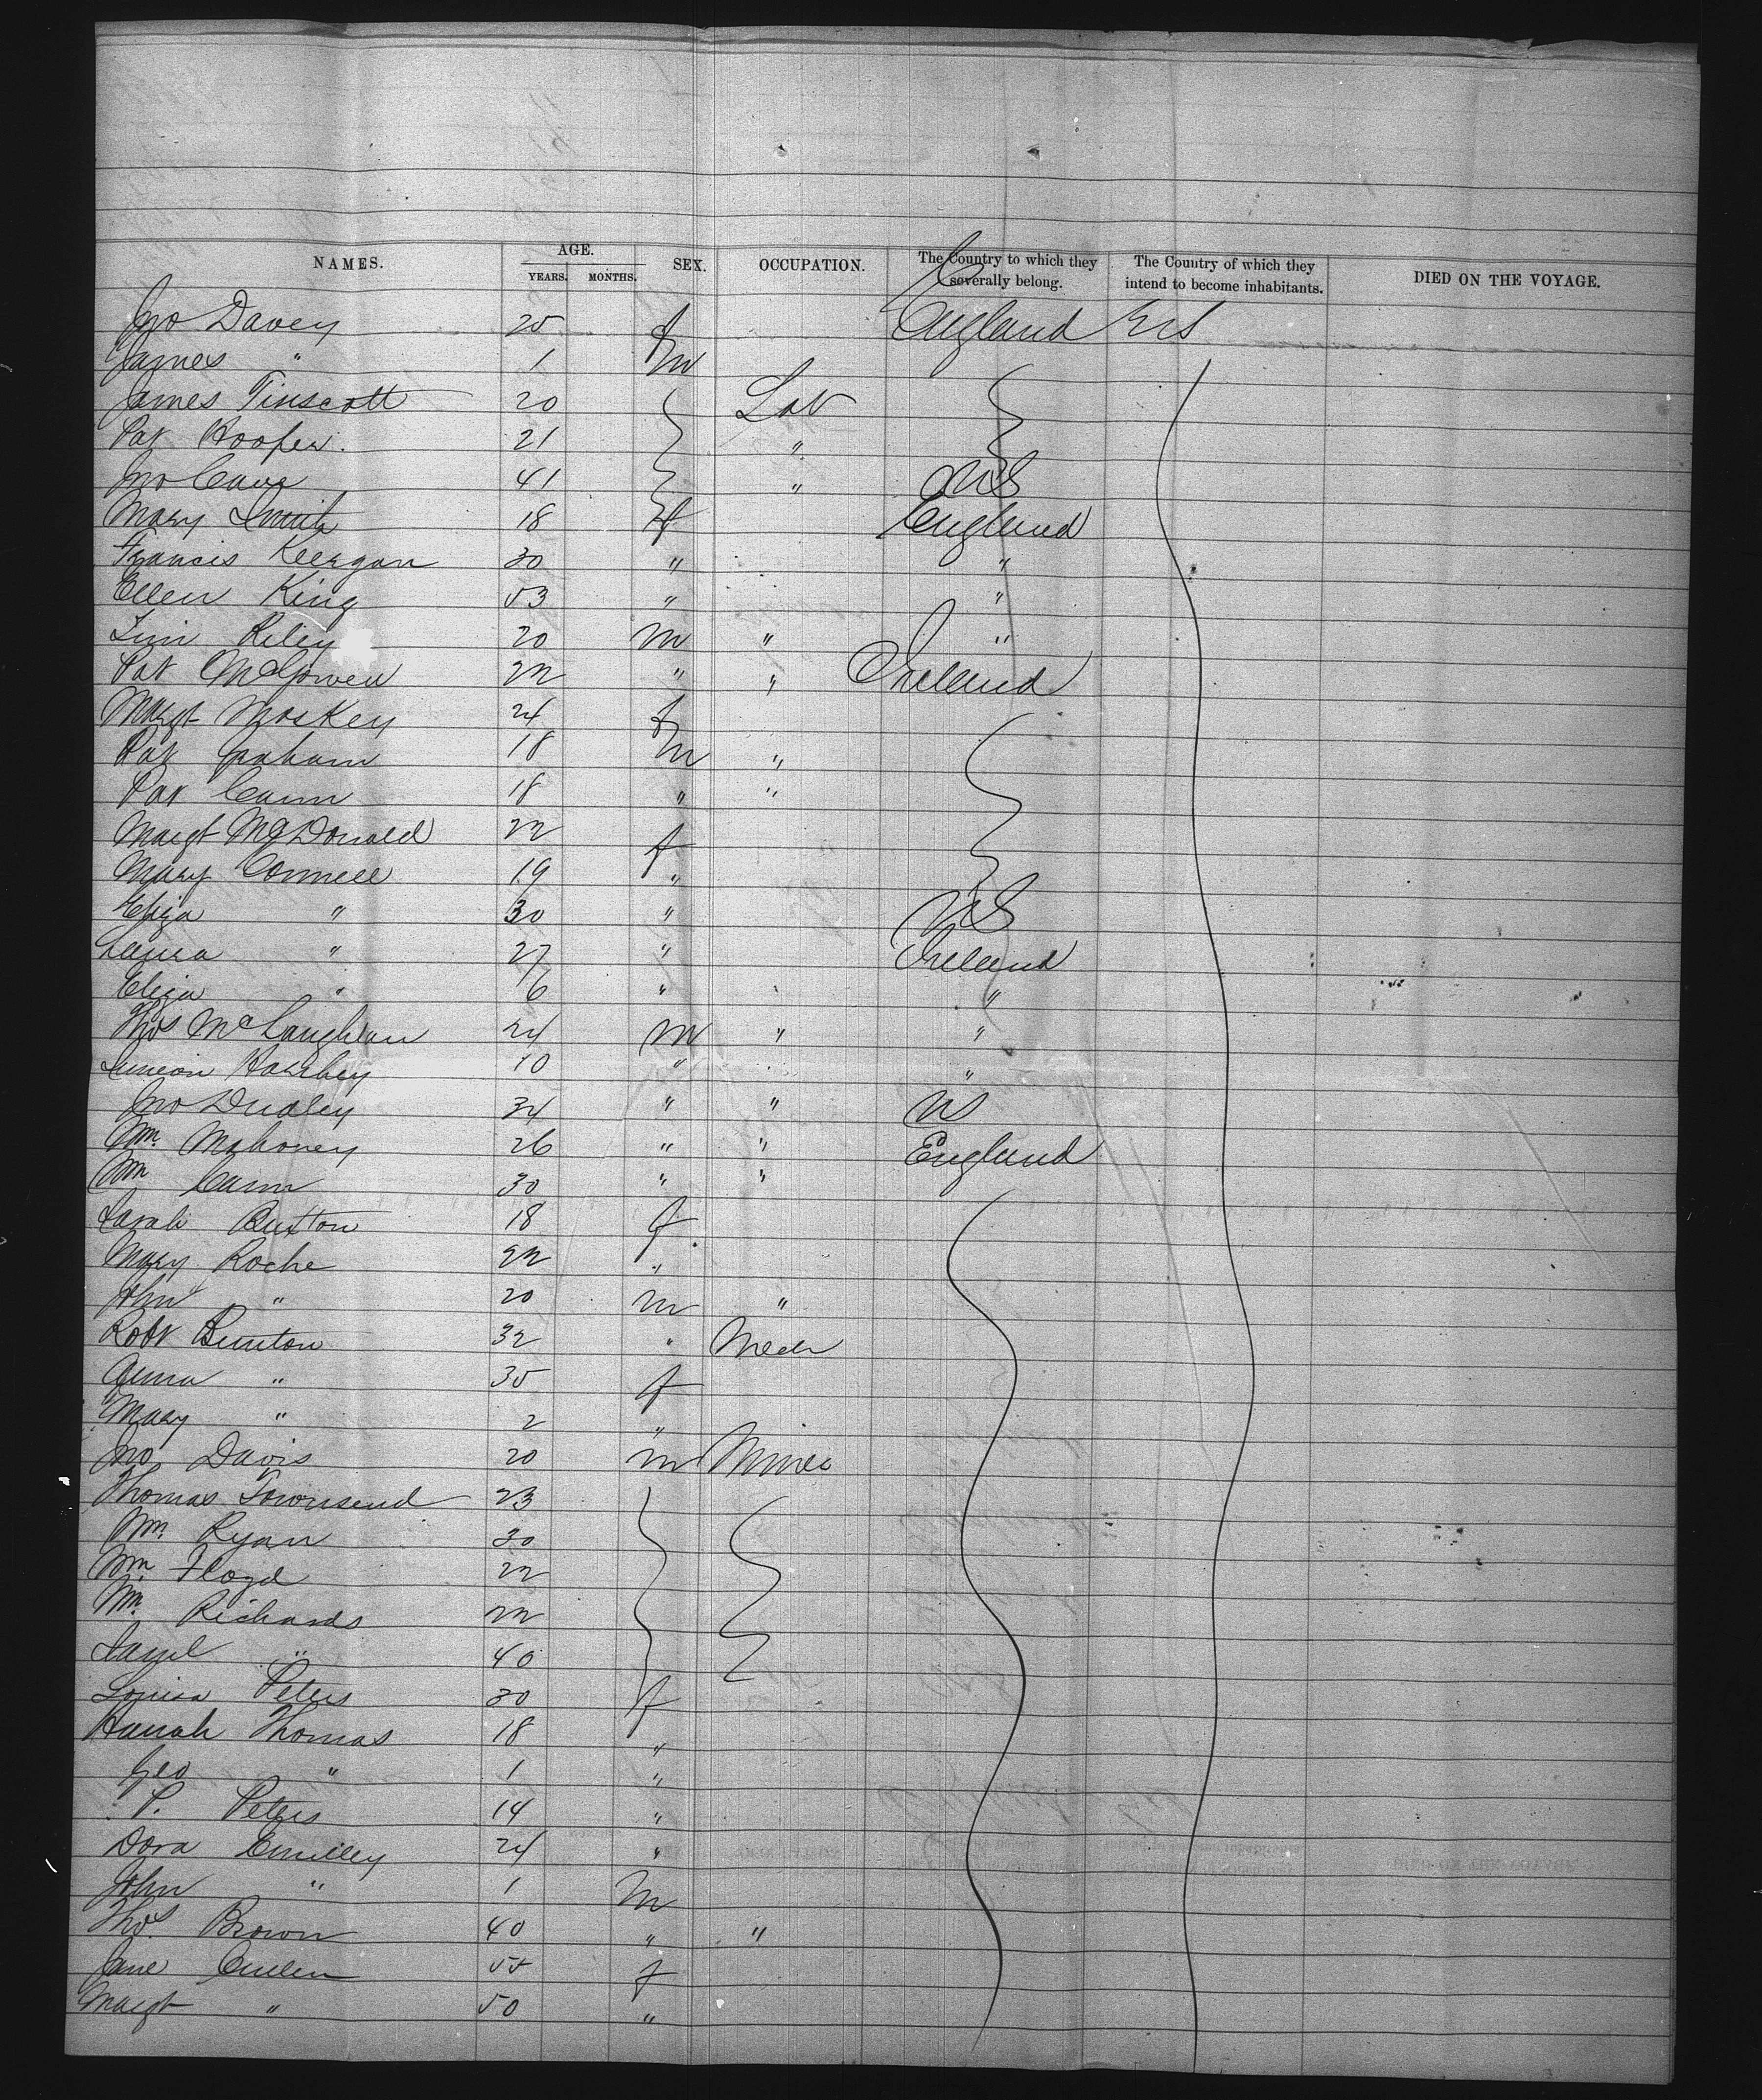 NAMES. AGE. YEARS. MONTHS. SEX. OCCUPATION. The Country to which they severally belong. The Country of which they intend to become inhabitants. DIED ON THE VOYAGE.
Jno Davey 25 f England US
James " 1 m
James Tinscott 20 Lab
Pat Hooper. 21 "
Jno 41 " US
Mary Smith 18 f England
Francis Keergan 30 " "
Ellen King 53 " "
Tim Riley 20 m " "
Pat McGowen 22 " " Ireland
Margt Moskey 24 f
Pat Graham 18 m "
Pat Cann 18 " "
Margt McDonald 22 f
Mary Connell 19 "
Eliza " 30 " US
Laura " 27 " Ireland
Eliza " 6 " "
Thos McLaughlan 24 m " "
Simeon 10 " "
Jno Dudley 34 " " US
Wm. Mahoney 26 " " England
Wm Cann 30 " "
Sarah Buxton 18 f
Mary Roche 22 "
John " 20 m "
Robt Bunton 32 " Mech
Anna " 35 f
Mary " 2 "
Jno Davis 20 m Miner
Thomas Townsend 23
Wm. Ryan 30
Wm. Floyd 22
Wm. Richards 22
Saml " 40
Louisa Peters 30 f
Hanah Thomas 18 "
Geo " 1 "
P. Peters 14 "
Dora 24 "
John " 1 m
Thos. Brown 40 " "
Jane Cullen 55 f
Margt " 50 "